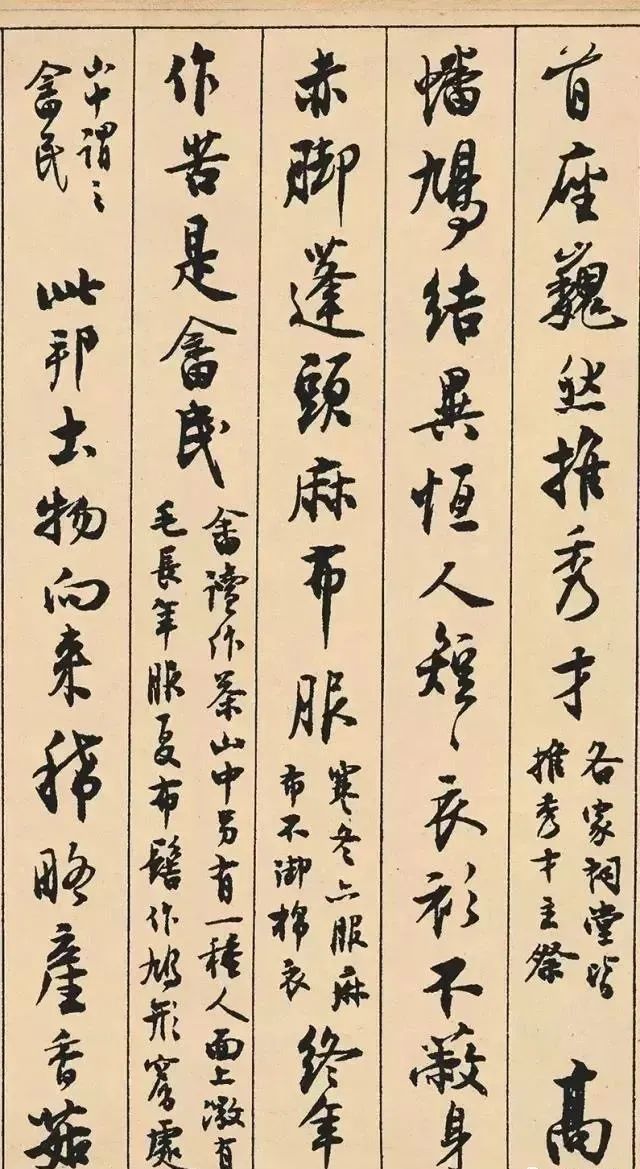 首座巍然推秀才
各家祠堂皆
推秀才主祭
高
蟠鳩結異恒人短〻衣衫不蔽身
赤脚蓬頭麻布服
寒冬亦服麻
布不御棉衣
終年
作苦是畬民
畬讀作茶山中另有一種人面上微有
毛長年服夏布髻作鳩形窩處
山中謂之
畬民
此邦土物向来稀略產香菇